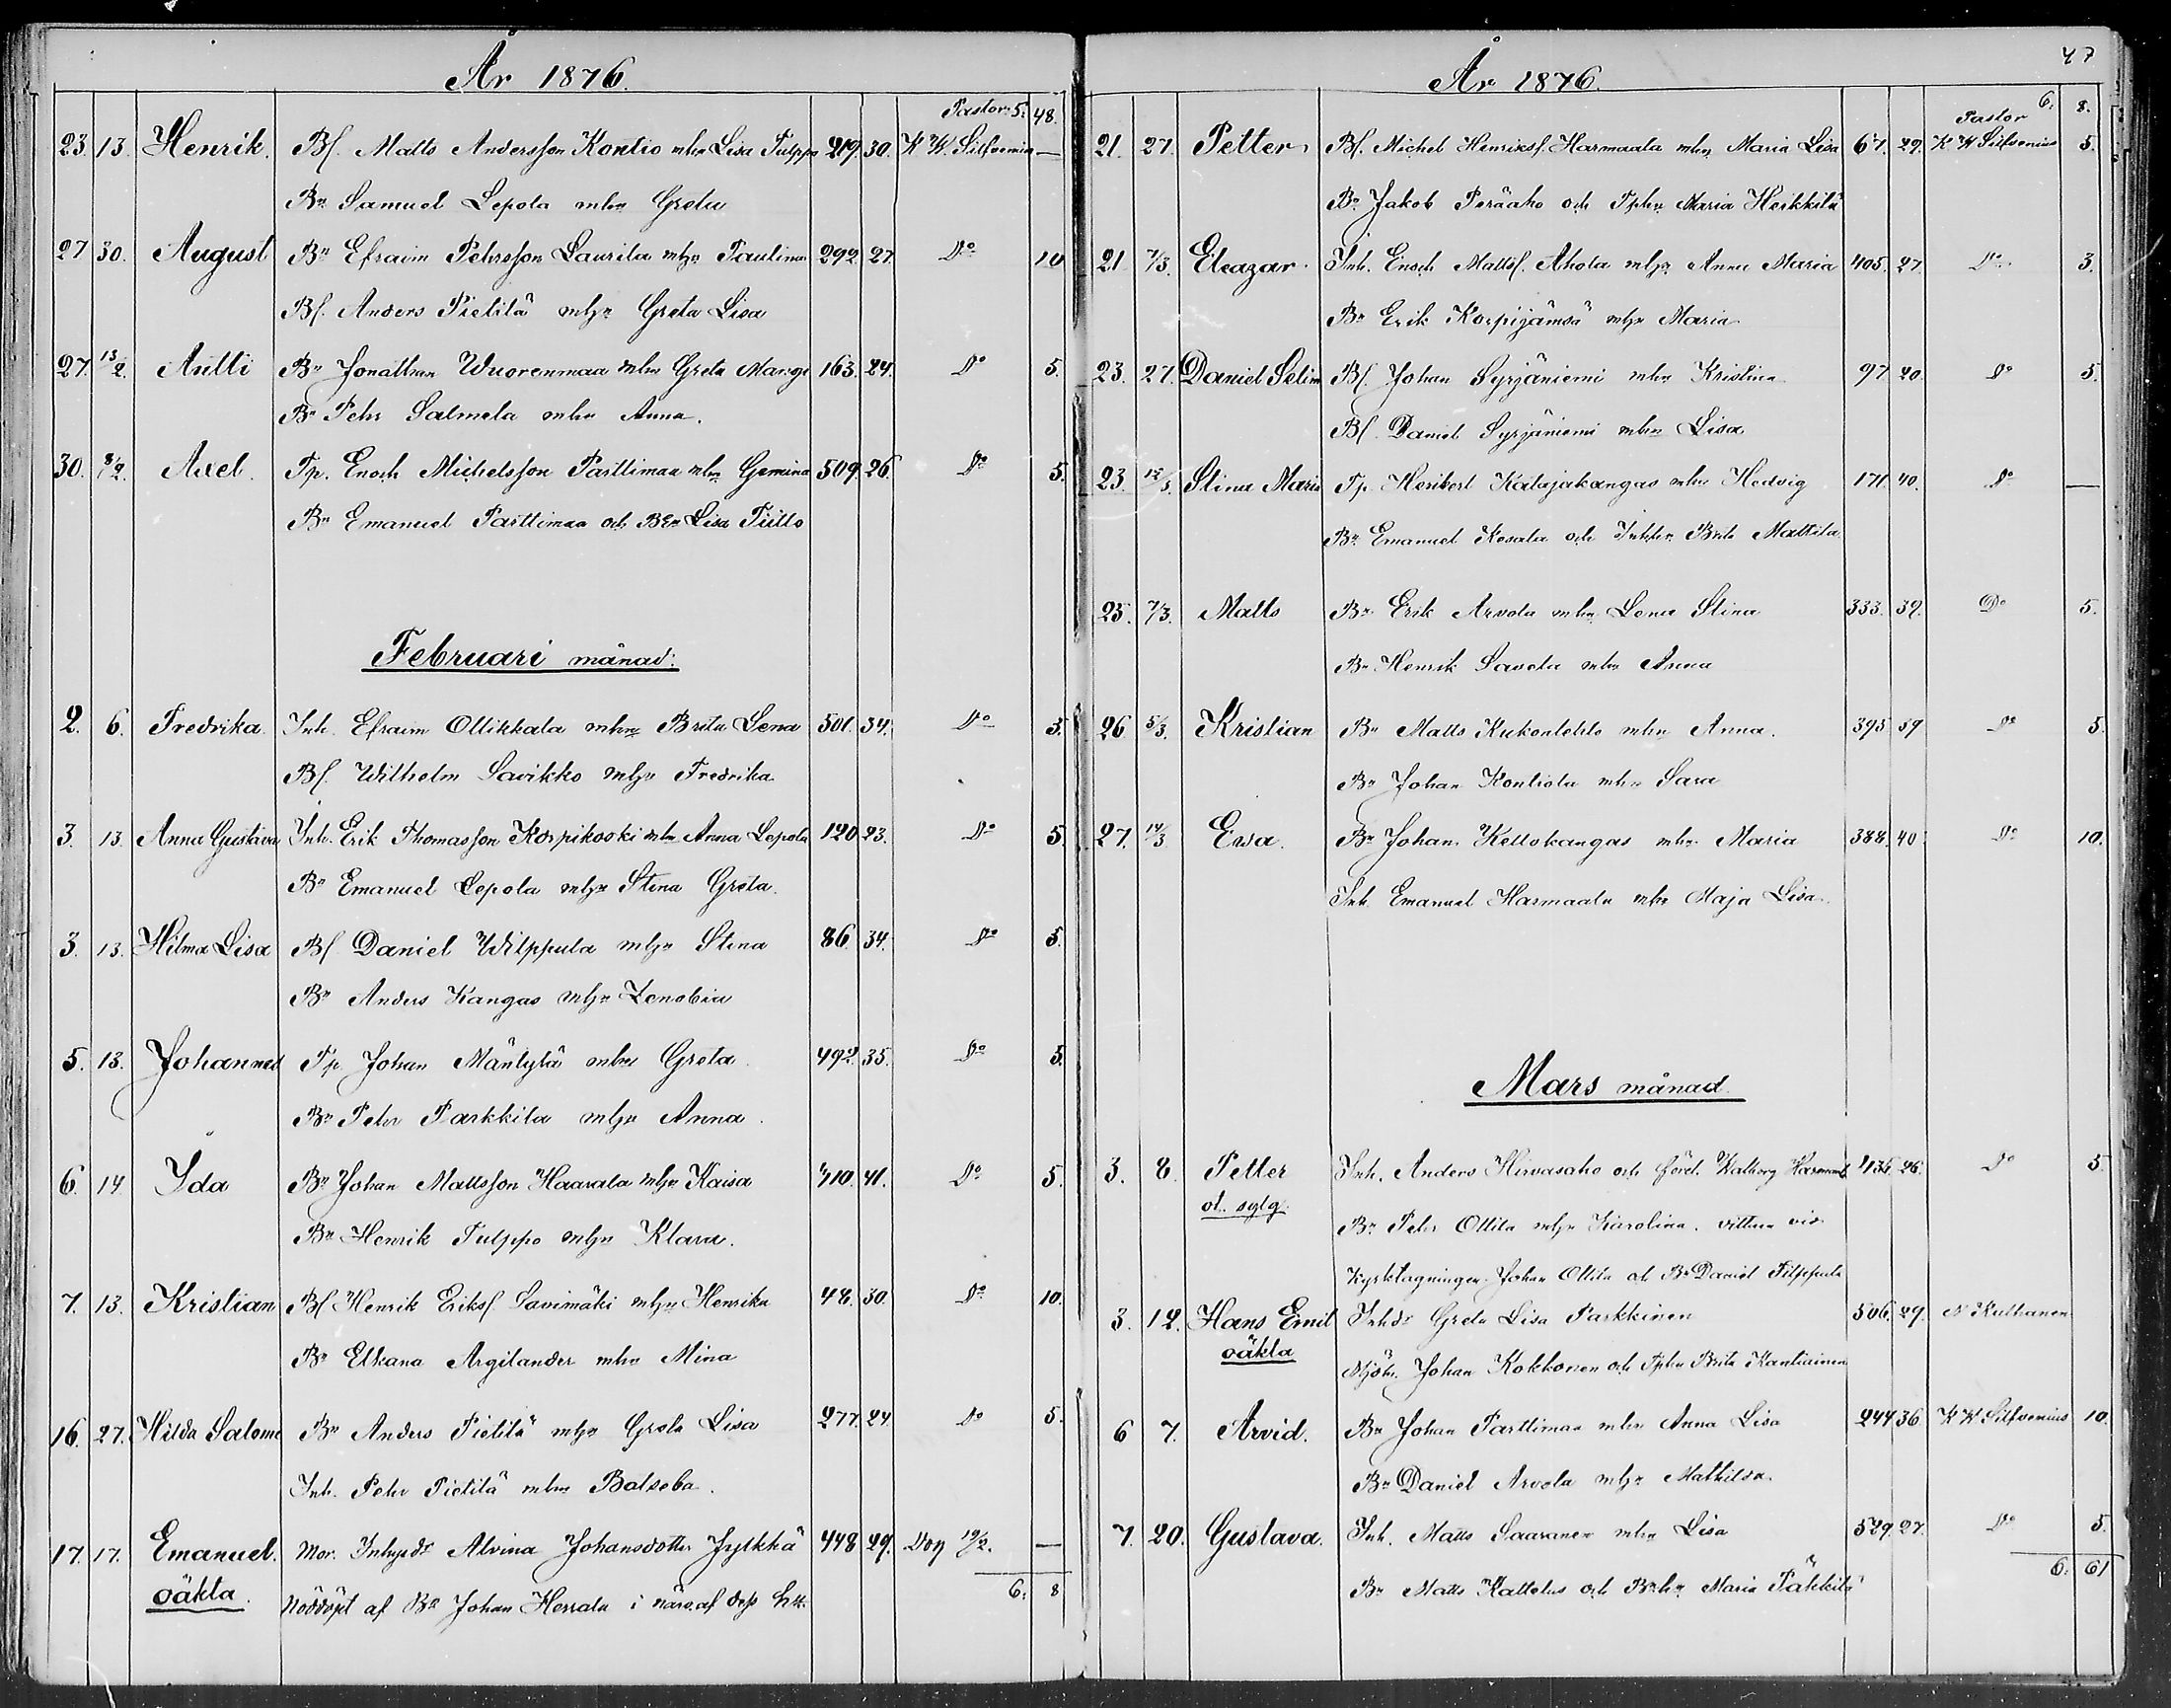 År 1876.
Pastor 5: 48.
23. 13. Henrik. Bf. Matts Andersson Kontio mhu Lisa Tulppo 219. 30. K W. Silfvenius —
Bn Samuel Lepola mhu Greta
27 30. August Bn Efraim Pehrsson Laurila mhu Paulina 292. 27 Do 10
Bf. Anders Pietilä mhu Greta Lisa
27. 13/2. Antti Bn Jonathan Wuorenmaa mhu Greta Marg. 163. 24. Do 5.
Bn Pehr Salmela mhu Anna.
30. 8/2. Axel. Tp. Enoch Michelsson Parttimaa mhu Gemina 509. 26 Do 5.
Bn Emanuel Parttimaa och Lisa Tiitto
Februari månad:
2. 6. Fredrika. Inh. Efraim Ollikkala mhu Brita Lena 501. 34. Do 5.
Bf. Wilhelm Savikko mhu Fredrika
3. 13. Anna Gustava Inh. Erik Thomasson Korpikoski mhu Anna Lepola 120 23. Do 5.
Bn Emanuel Lepola mhu Stina Greta.
3. 13. Hilma Lisa Bf. Daniel Wilppula mhu Stina 86. 34. Do 5.
Bn Anders Kangas mhu Zenobia
5. 13. Johannes Tp Johan Mäntylä mhu Greta 492. 35. Do 5.
Bn Pehr Parkkila mhu Anna.
6. 14 Ida Bn Johan Mattsson Haarala mhu Kaisa 410. 41. Do 5.
Bn Henrik Tulppo mhu Klara.
7. 13. Kristian Bf Henrik Eriksf. Savimäki mhu Henrika 48. 30. Do 10.
Bn Elkana Argilander mhu Mina
16. 27. Hilda Salome Bn Anders Pietilä mhu Greta Lisa 277. 24. Do 5.
Inh. Pehr Pietilä mhu Batseba.
17. 17. Emanuel. Mor. Inhysdr Alvina Johansdotter Jylkkä 448 29. 19/2. —
oäkta. Nöddöpt af Bn Johan Herrala i närv. af dess 6: 8
År 1876.
47
Pastor 6. 8.
21. 27. Petter Bf. Michel Henriksf. Harmaala mhu Maria Lisa 67. 29. K W Silfvenius 5.
Bn Jakob Peräaho och Tphu Maria Heikkilä
21 7/3. Eleazar. Inh. Enoch Mattsf. Ahola mhu Anna Maria 405. 27. Do 3.
Bn Erik Korpijämsä mhu Maria
23. 27. Daniel Selim Bf. Johan Syrjäniemi mhu Kristina 97 20. Do 5.
Bf. Daniel Syrjäniemi mhu Lisa
23. 12/3. Stina Maria Tp. Heribert Katajakangas mhu Hedvig 171 40. Do —
Bn Emanuel Kosala och Brita Mattila
25. 7/3. Matts Bn Erik Arvola mhu Lena Stina 333. 39. Do 5.
Bn Henrik Savela mhu Anna
26 5/3. Kristian Bn Matts Kukonlehto mhu Anna. 395 39 Do 5.
Bn Johan Kontiola mhu Sara
27. 14/3 Ewa. Bn Johan Kellokangas mhu Maria 388. 40 Do 10.
Inh. Emanuel Harmaala mhu Maja Lisa.
Mars månad.
3. 8. Petter Inh. Anders Hirvasaho och Walborg 26. Do 5.
Bn Pehr Ollila mhu Karolina. vittna vid
Kyrktagningen. Johan Ollila och Bn Daniel
3. 12. Hans Emil Inhdr Greta Lisa Parkkinen 506. 29.
oäkta Mjöln. Johan Kokkonen och Tphu Brita
6 7. Arvid. Bn Johan Parttimaa mhu Anna Lisa 244 36 K W Silfvenius 10.
Bn Daniel Arvola mhu Mathilda.
7. 20. Gustava. Inh. Matts Saaranen mhu Lisa 529 27. Do 5.
Bn Matts och Bnhu Maria Päkkilä 6. 61